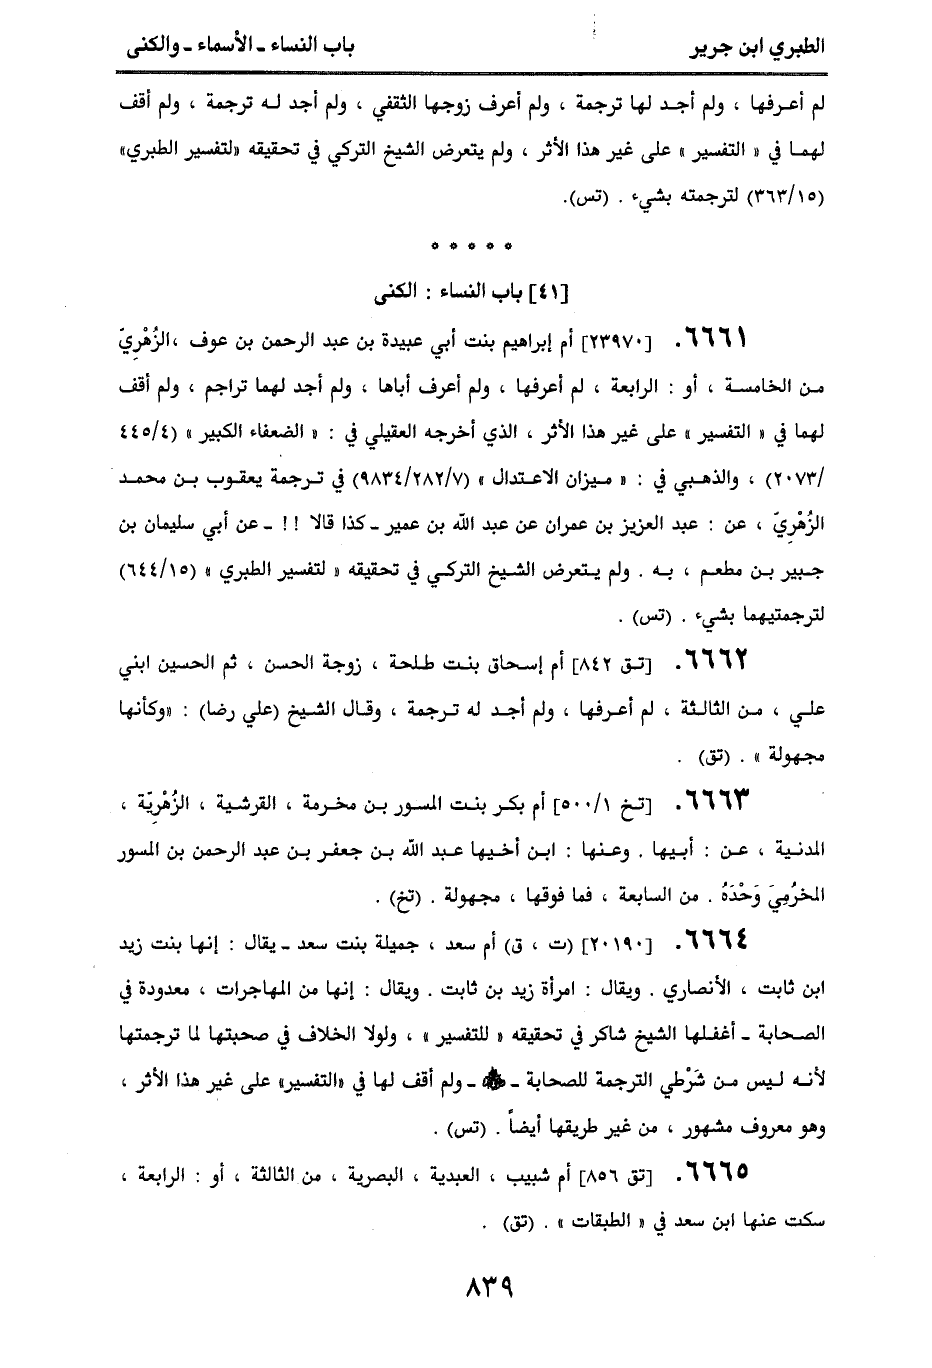 الطبري ابن جرير
باب النساء ـ الأسماء ـ والكنى
لم أعرفها ، ولم أجد لها ترجمة ، ولم أعرف زوجها الثقفي ، ولم أجد له ترجمة ، ولم أقف
لهما في « التفسير » على غير هذا الأثر ، ولم يتعرض الشيخ التركي في تحقيقه «لتفسير الطبري»
(٣٦٣/١٥) لترجمته بشيء . (تس).
* * * * *
[٤١] باب النساء : الكنى
٦٦٦١. [٢٣٩٧٠] أم إبراهيم بنت أبي عبيدة بن عبد الرحمن بن عوف ،الزُهْرِيّ
من الخامسة ، أو : الرابعة ، لم أعرفها ، ولم أعرف أباها ، ولم أجد لهما تراجم ، ولم أقف
لهما في « التفسير » على غير هذا الأثر ، الذي أخرجه العقيلي في : « الضعفاء الكبير » (٤٤٥/٤
/٢٠٧٣) ، والذهبي في : « ميزان الاعتدال » (٩٨٣٤/٢٨٢/٧) في ترجمة يعقوب بن محمد
الزُهْرِيّ ، عن : عبد العزيز بن عمران عن عبد الله بن عمير ـ كذا قالا !! ـ عن أبي سليمان بن
جبير بن مطعم ، به . ولم يتعرض الشيخ التركي في تحقيقه « لتفسير الطبري » (٦٤٤/١٥)
لترجمتيهما بشيء . (تس) .
٦٦٦٢. [تق ٨٤٢] أم إسحاق بنت طلحة ، زوجة الحسن ، ثم الحسين ابني
علي ، من الثالثة ، لم أعرفها ، ولم أجد له ترجمة ، وقال الشيخ (علي رضا) : «وكأنها
مجهولة » . (تق) .
٦٦٦٣. [تخ ٥٠٠/١] أم بكر بنت المسور بن مخرمة ، القرشية ، الزُهْرِيّة ،
المدنية ، عن : أبيها . وعنها : ابن أخيها عبد الله بن جعفر بن عبد الرحمن بن المسور
المخرُمِيَ وَحْدَهُ . من السابعة ، فما فوقها ، مجهولة . (تخ) .
٦٦٦٤. [٢٠١٩٠] (ت ، ق) أم سعد ، جميلة بنت سعد ـ يقال : إنها بنت زيد
ابن ثابت ، الأنصاري . ويقال : امرأة زيد بن ثابت . ويقال : إنها من المهاجرات ، معدودة في
الصحابة ـ أغفلها الشيخ شاكر في تحقيقه « للتفسير » ، ولولا الخلاف في صحبتها لما ترجمتها
لأنه ليس من شَرْطي الترجمة للصحابة ـ ـ ولم أقف لها في «التفسير» على غير هذا الأثر ،
وهو معروف مشهور ، من غير طريقها أيضاً . (تس) .
٦٦٦٥. [تق ٨٥٦] أم شبيب ، العبدية ، البصرية ، من الثالثة ، أو : الرابعة ،
سكت عنها ابن سعد في « الطبقات » . (تق) .
٨٣٩